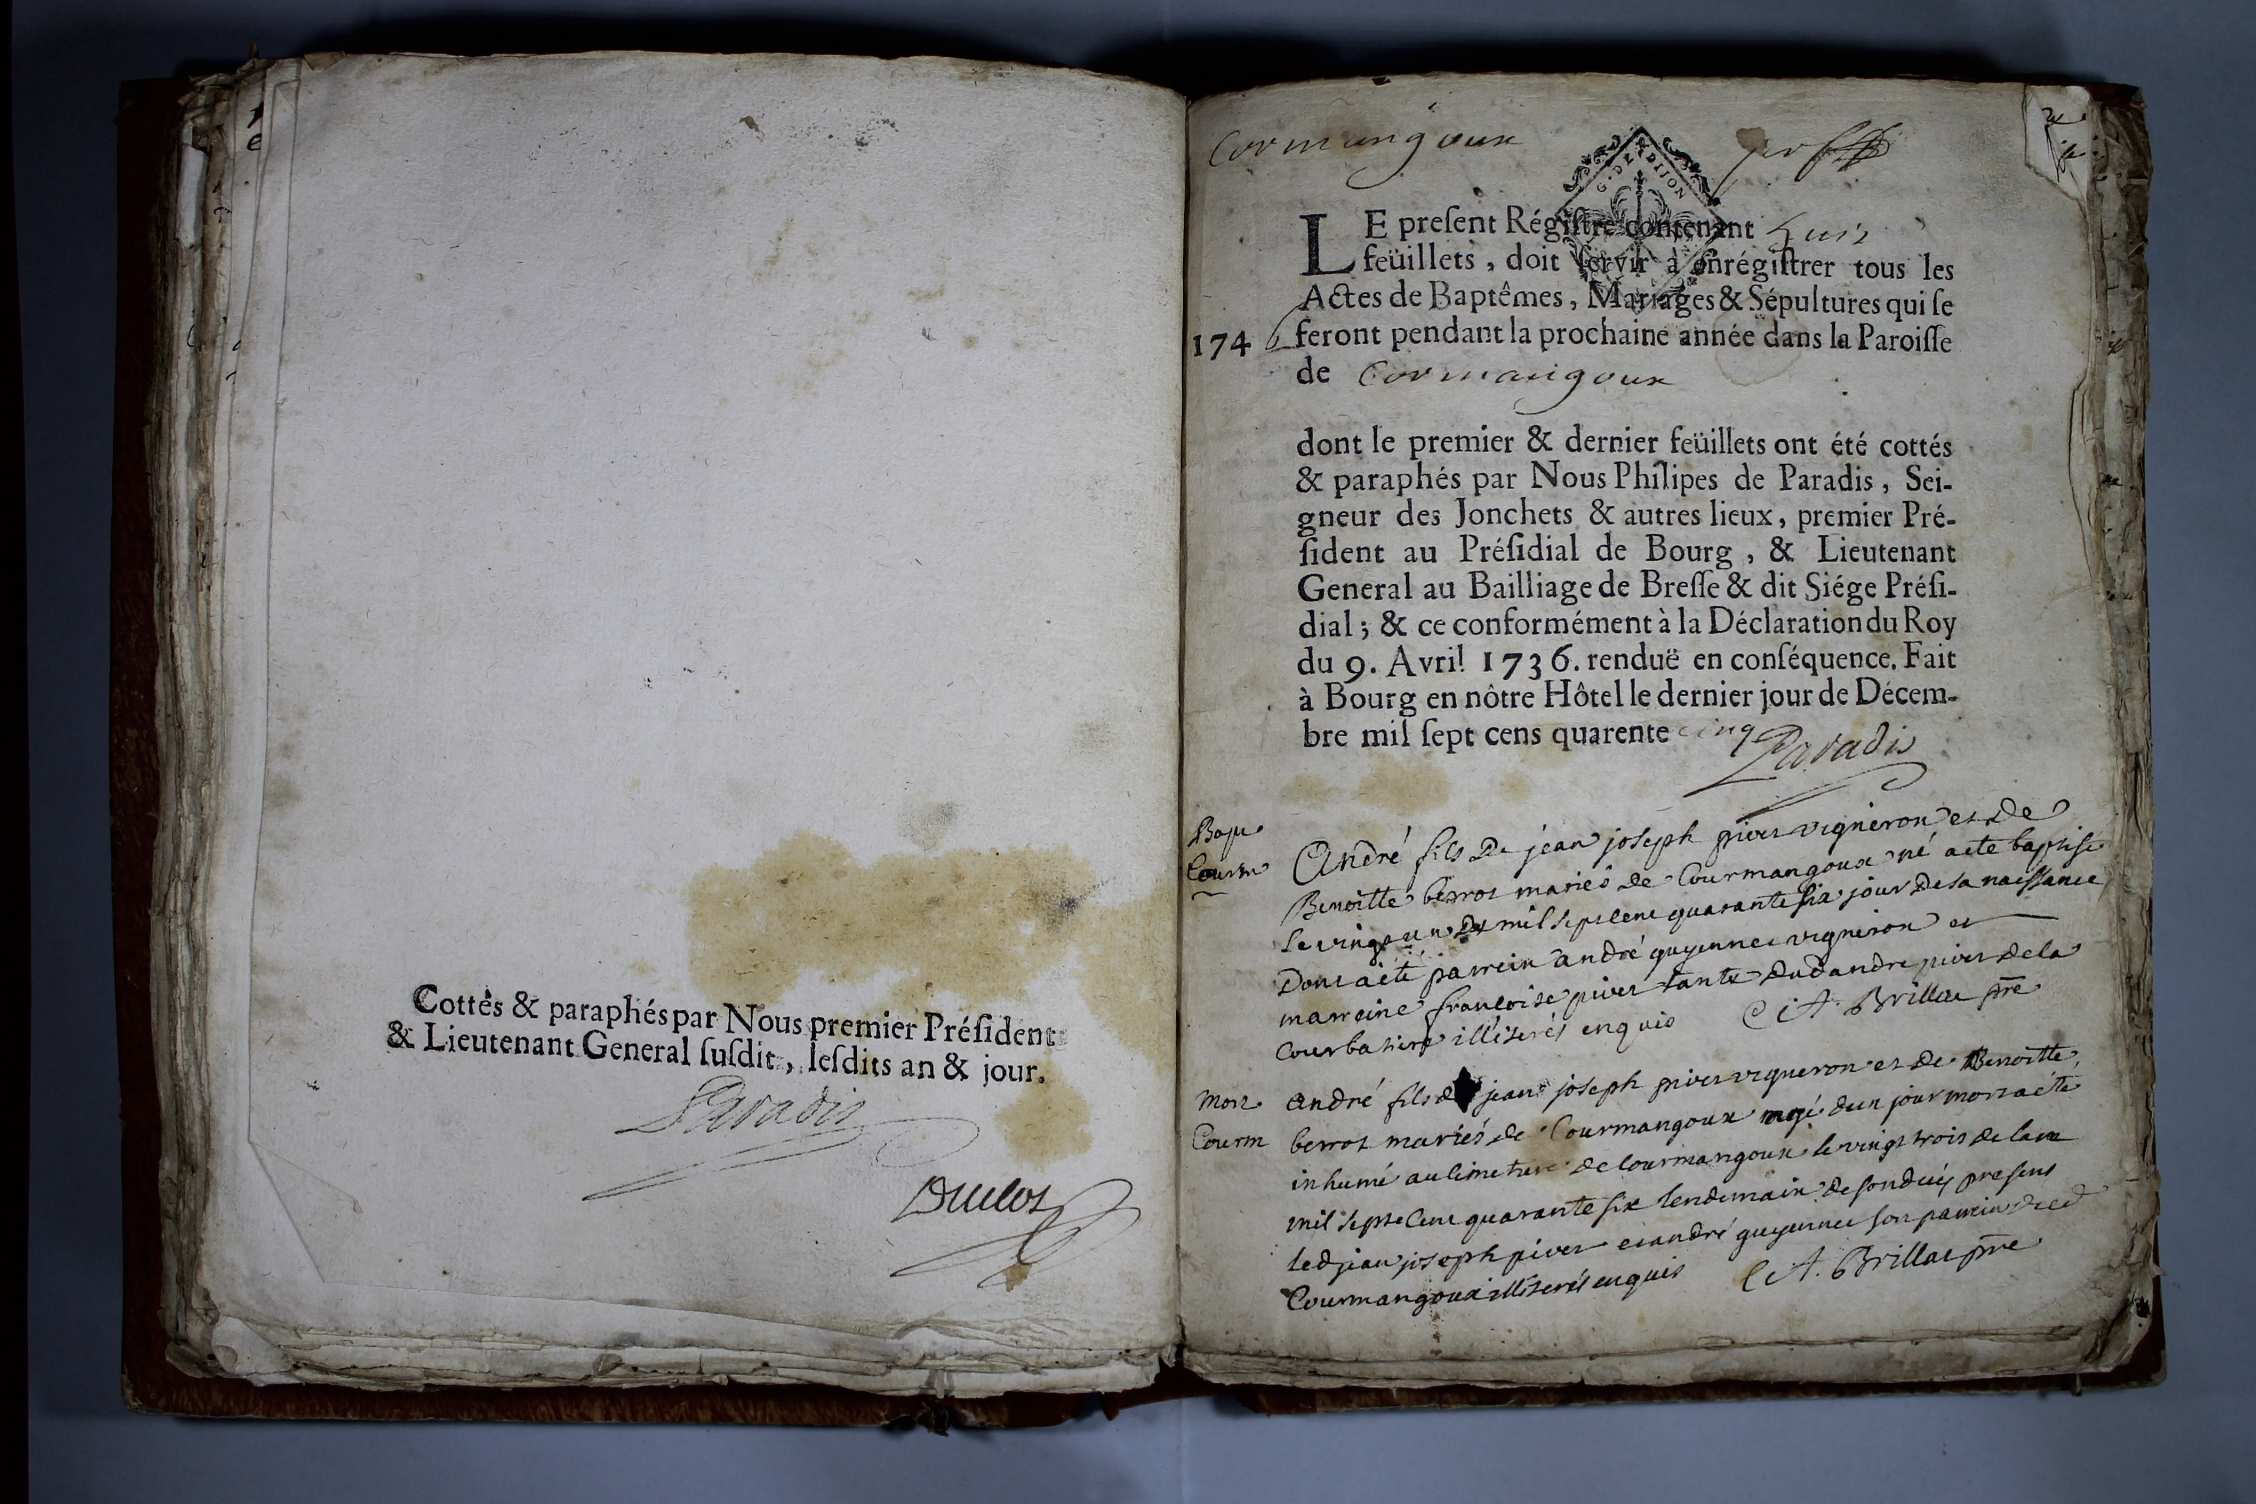 Cottés & paraphés par Nous premier Président
& Lieutenant General susdit, lesdits an & jour.
Paradis
Duclos
Cormangoux
G. DE DIJON
LE present Régistre contenant huit
feüillets, doit servir à enrégistrer tous les
Actes de Baptêmes, Mariages & Sépultures qui se
1746 feront pendant la prochaine année dans la Paroisse
de Cormangoux
dont le premier & dernier feüillets ont été cottés
& paraphés par Nous Philipes de Paradis, Sei-
gneur des Jonchets & autres lieux, premier Pré-
sident au Présidial de Bourg, & Lieutenant
General au Bailliage de Bresse & dit Siége Prési-
dial; & ce conformément à la Déclaration du Roy
du 9. Avril 1736. renduë en conséquence. Fait
à Bourg en nôtre Hôtel le dernier jour de Décem-
bre mil sept cens quarente cinq
Paradis
Bap
Courm
André fils de jean joseph pivet vigneron et de
Benoitte berrot mariés de Courmangoux né a eté baptisé
le vingt un mil sept cent quarante six jour de sa naissance
dont a eté parrein andré guyennet vigneron et
marreine francoise pivet tante dud andre pivet de la
courbatiere illiterés enquis A. Brillat pre
Mort
Courm
André fils de jean joseph pivet vigneron et de Benoitte
berrot mariés de Courmangoux agé d'un jour mort a eté
inhumé au cimetiere de Courmangoux le vingt trois de l'an
mil sept cent quarante six lendemain de son deces presens
led jean joseph pivet et andré guyennet son parrein dud
Courmangoux illiterés enquis A. Brillat pre